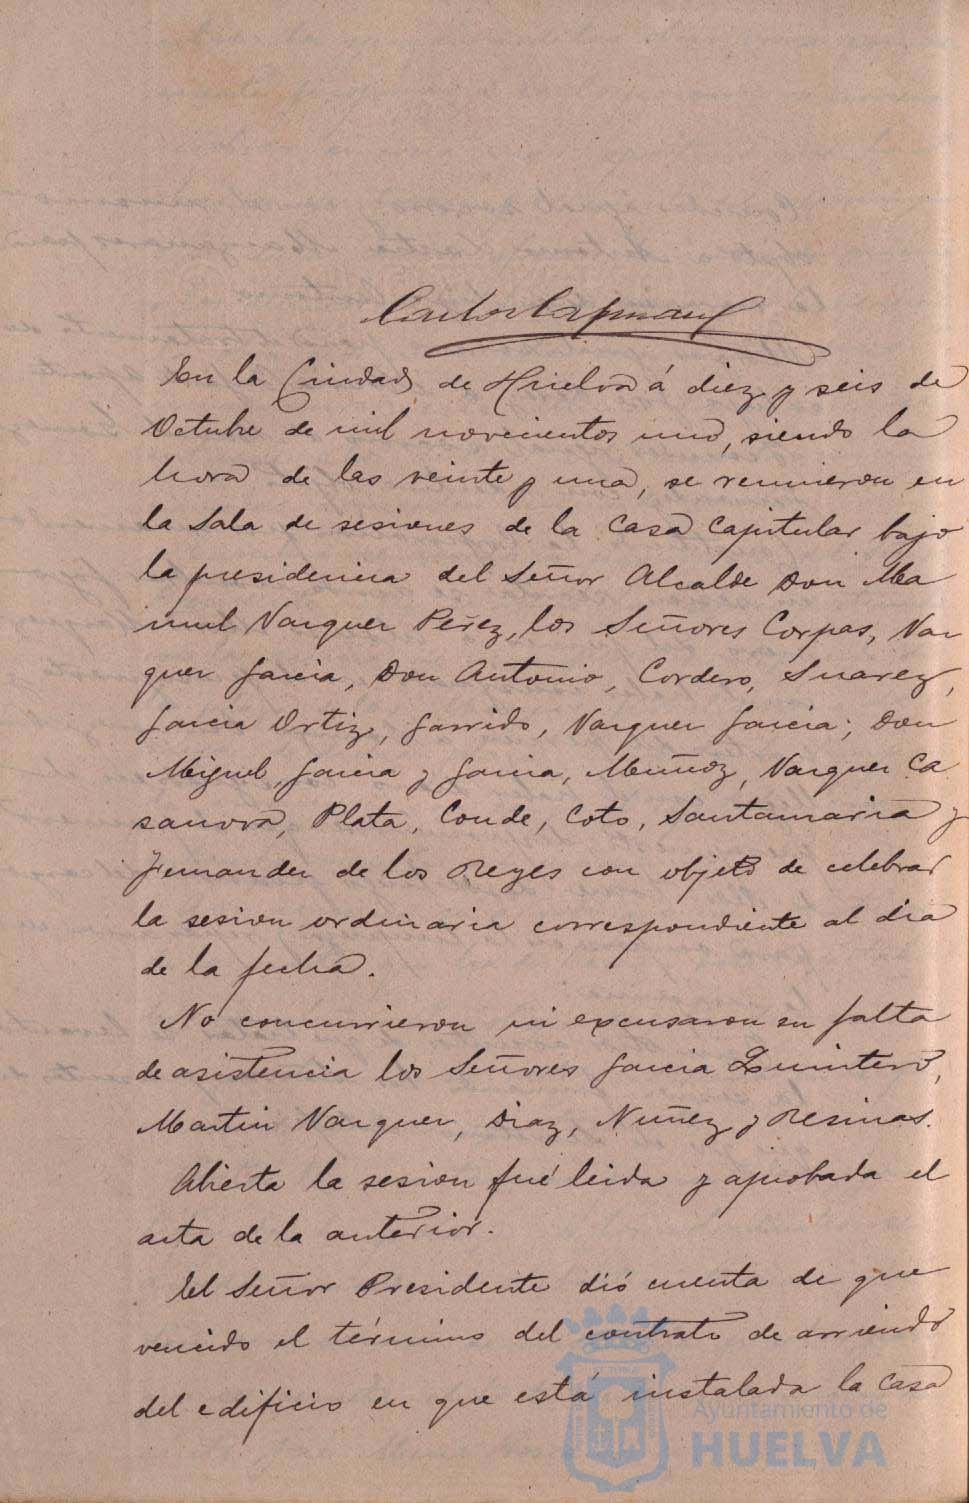 En la Ciudad de Huelva á diez y seis de
Octubre de mil novecientos uno, siendo la
hora de las veinte y una, se reunieron en
la Sala de sesiones de la Casa Capitular bajo
la presidencia del Señor Alcalde Don Ma
nuel Vazquez Perez, los Señores Corpas, Vaz
quez Garcia, Don Antonio, Cordero, Suarez,
Garcia Ortiz, Garrido, Vazquez Garcia, Don
Miguel, Garcia y Garcia, Muñoz, Vazquez Ca
sanova, Plata, Conde, Coto, Santamaria y
Fernandez de los Reyes con objeto de celebrar
la sesion ordinaria correspondiente al dia
de la fecha.
No concurrieron ni excusaron su falta
de asistencia los Señores Garcia Quintero,
Martin Vazquez, Diaz, Nuñez y Resinas.
Abierta la sesion fué leida y aprobada el
acta de la anterior.
El Señor Presidente dió cuenta de que
vencido el término del contrato de arriendo
del edificio en que está instalada la Casa
Ayuntamiento de
HUELVA